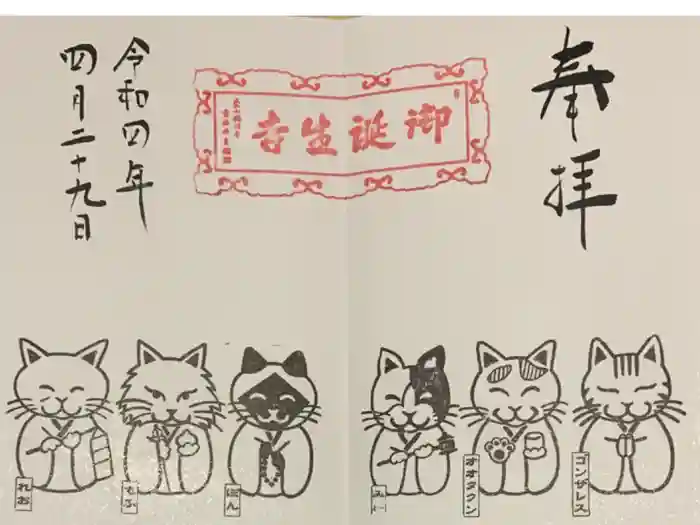 奉拝
御誕生寺
令和四年
四月二十九日
れお
もふ
ぽん
オオタクン
ゴンザレス